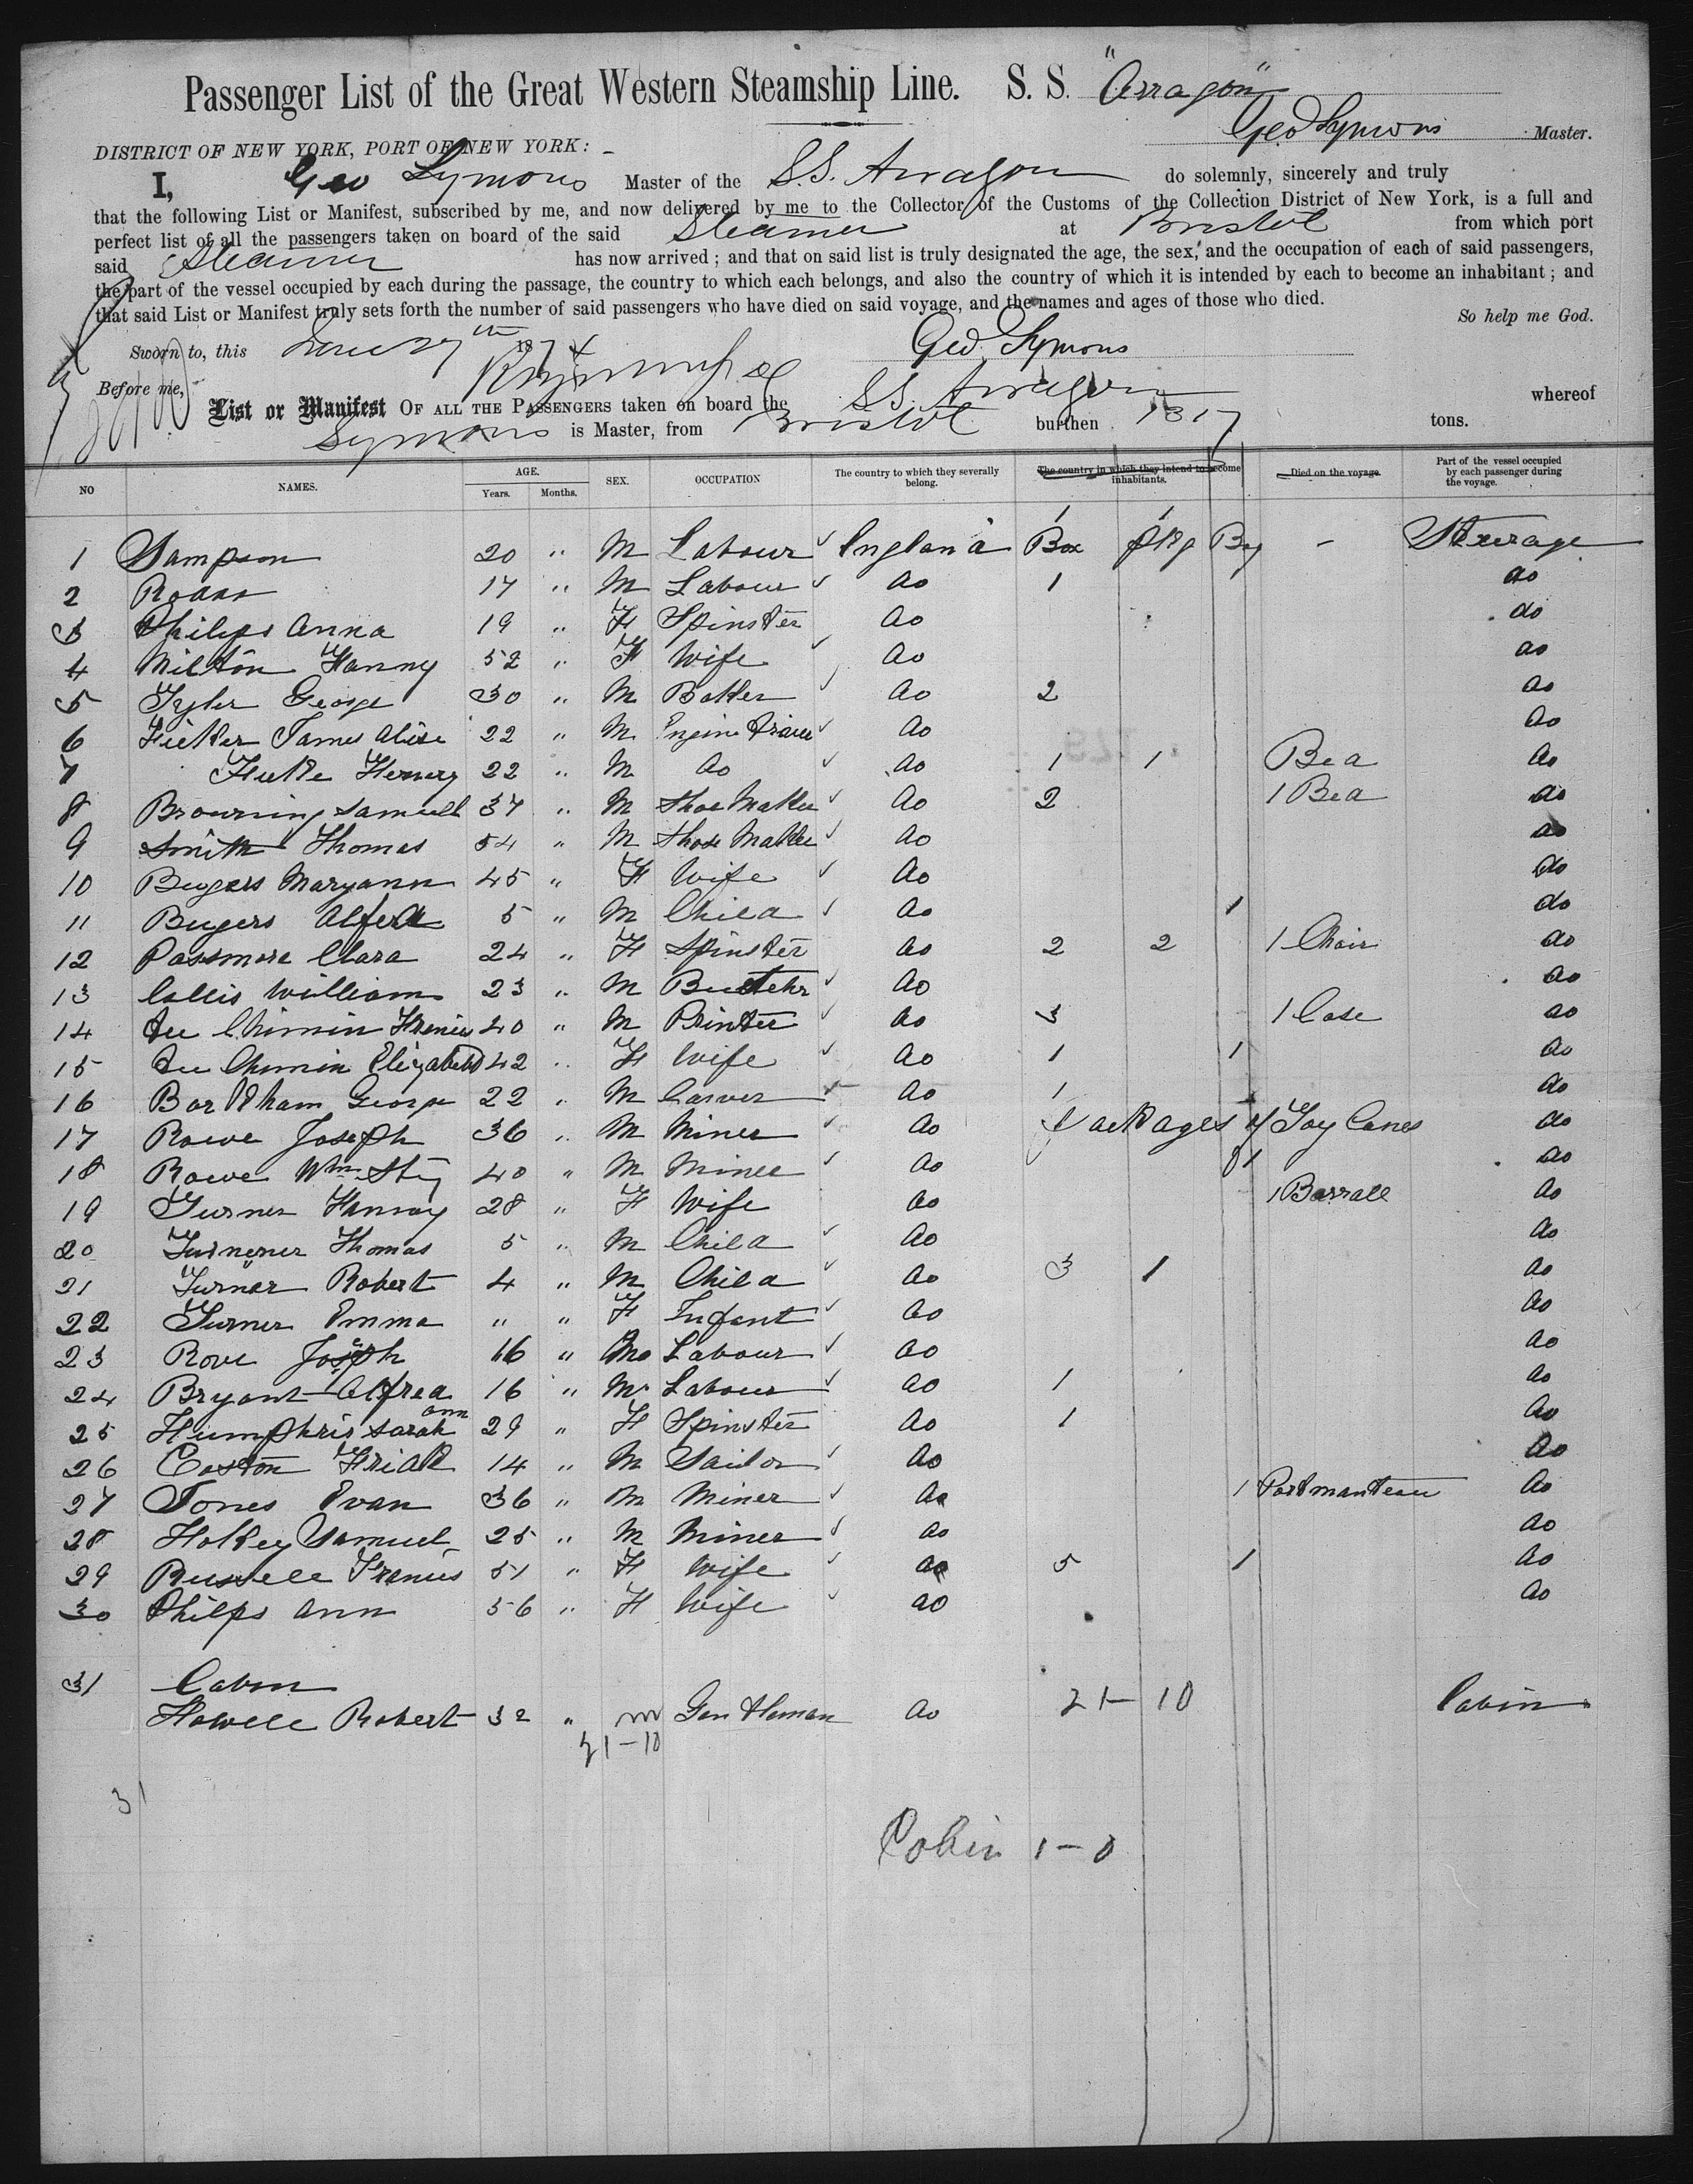 Passenger List of the Great Western Steamship Line. S. S. "Arragon"
Geo Symons Master.
DISTRICT OF NEW YORK, PORT OF NEW YORK:
I, Geo Symons Master of the S.S. Arragon do solemnly, sincerely and truly
that the following List or Manifest, subscribed by me, and now delivered by me to the Collector of the Customs of the Collection District of New York, is a full and
perfect list of all the passengers taken on board of the said Steamer at Bristol from which port
said Steamer has now arrived ; and that on said list is truly designated the age, the sex, and the occupation of each of said passengers,
the part of the vessel occupied by each during the passage, the country to which each belongs, and also the country of which it is intended by each to become an inhabitant ; and
that said List or Manifest truly sets forth the number of said passengers who have died on said voyage, and the names and ages of those who died.
So help me God.
Sworn to, this 27th 1874 Geo Symons
Before me,
List or Manifest OF ALL THE PASSENGERS taken on board the SS. Arragon whereof
Symons is Master, from Bristol burthen 1317 tons.
NO NAMES. AGE. Years. Months. SEX. OCCUPATION The country to which they severally belong. The country in which they intend to become inhabitants. Died on the voyage. Part of the vessel occupied by each passenger during the voyage.
1 Sampson 20 " M Labour England 1 Box 1 pkg Bg - Steerage
2 17 " M Labour do 1 do
3 Philips Anna 19 " F Spinster do do
4 Milton Fanny 52 " F Wife do do
5 Tyler George 30 " M Baker do 2 do
6 James 22 " M Engine Driver do do
7 22 " M do do 1 1 Bed do
8 Browning Samuell 37 " M Shoe Maker do 2 1 Bed do
9 Smith Thomas 54 " M Shoe Maker do do
10 Maryann 45 " F Wife do do
11 Bugers 5 " M Child do 1 do
12 Passmore Clara 24 " F Spinster do 2 2 1 Chair do
13 Collis William 23 " M do do
14 40 " M Printer do 3 1 Case do
15 Elizabeth 42 " F Wife do 1 1 do
16 George 22 " M Carver do 1 do
17 Rowe Joseph 36 " M Miner do Packages of Toy Canes do
18 Rowe Wm 40 " M Miner do 1 do
19 Turner 28 " F Wife do 1 Barrall do
20 Turnener Thomas 5 " M Child do do
21 Turner Robert 4 " M Child do 3 1 do
22 Turner Emma " " F Infant do do
23 Rove Joseph 16 " M Labour do do
24 Bryant Alfred 16 " M Labour do 1 do
25 Humphris Sarah ann 29 " F Spinster do 1 do
26 Easton 14 " M Sailor do do
27 Jones Evan 36 " M Miner do 1 Portmanteau do
28 Holkey Samuel 25 " M Miner do do
29 Russell 51 " F Wife do 5 1 do
30 Philps Ann 56 " F Wife do do
31 Cabin
Howell Robert 32 " m Gentleman do 21 - 10 Cabin
21 - 10
31
Cabin 1 - 0